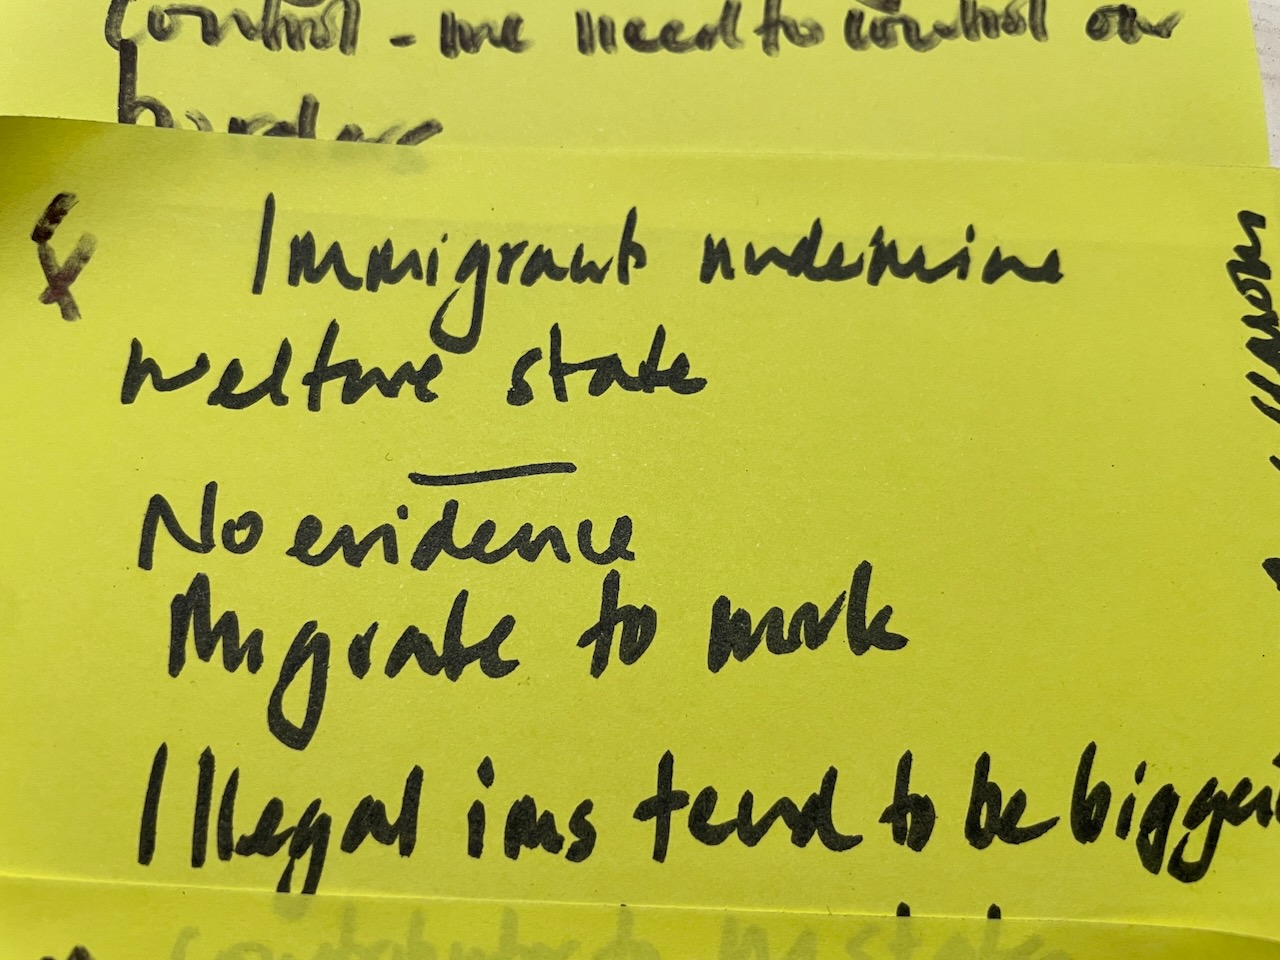 Control - we need to control our
borders
Immigrants undermine
welfare state
No evidence
Migrate to work
Illegal ims tend to be biggest
contributors to the state